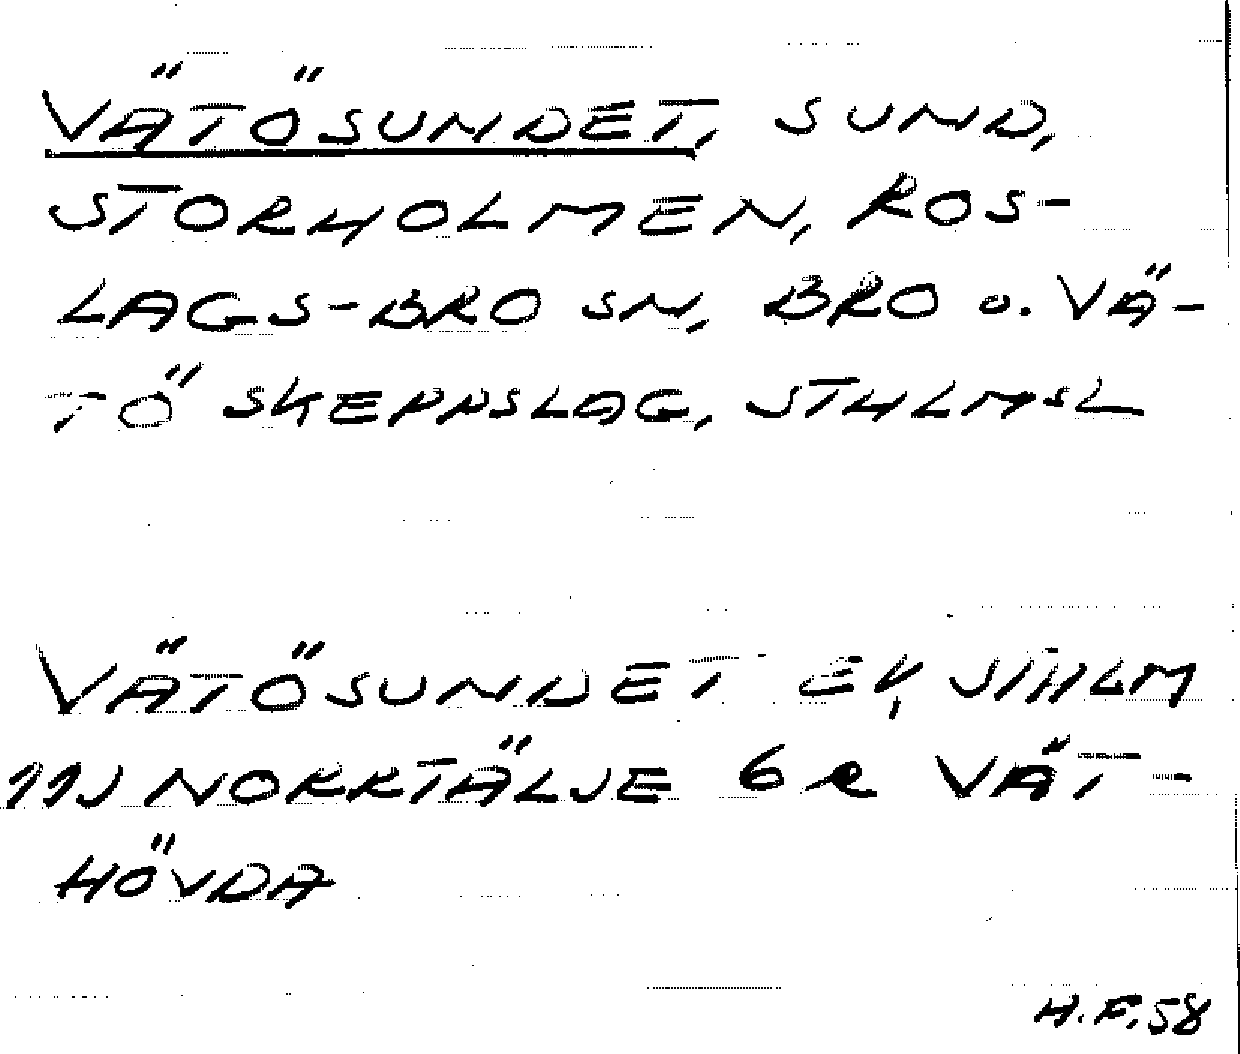 VÄTÖSUNDET, SUND,
STORHOLMEN, ROS-
LAGS-BRO SN, BRO o. VÄ-
TÖ SKEPPSLAG, STHLMSL
VÄTÖSUNDET EK, STHLM
11J NORRTÄLJE 6 e VÄT-
HÖVDA
H.F. 58